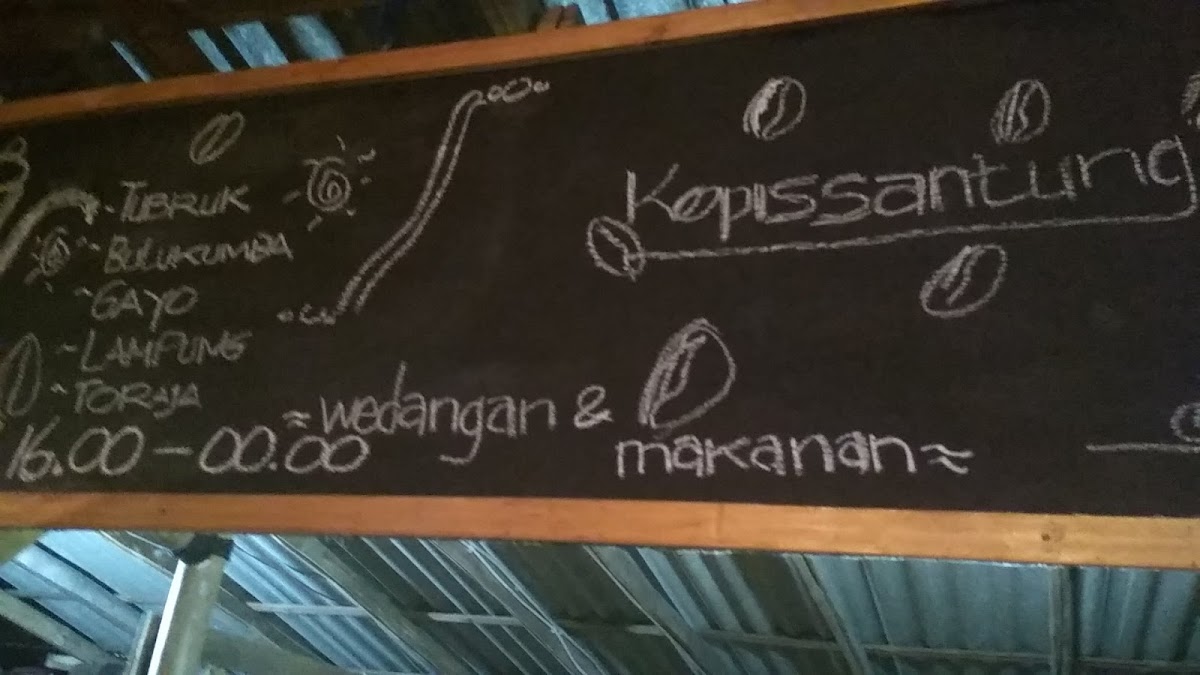 ~TUBRUK
~BULUKUMBA
~GAYO
~LAMPUNG
~TORAJA
16.00-00.00
Kopissantung
≈wedangan &
makanan≈